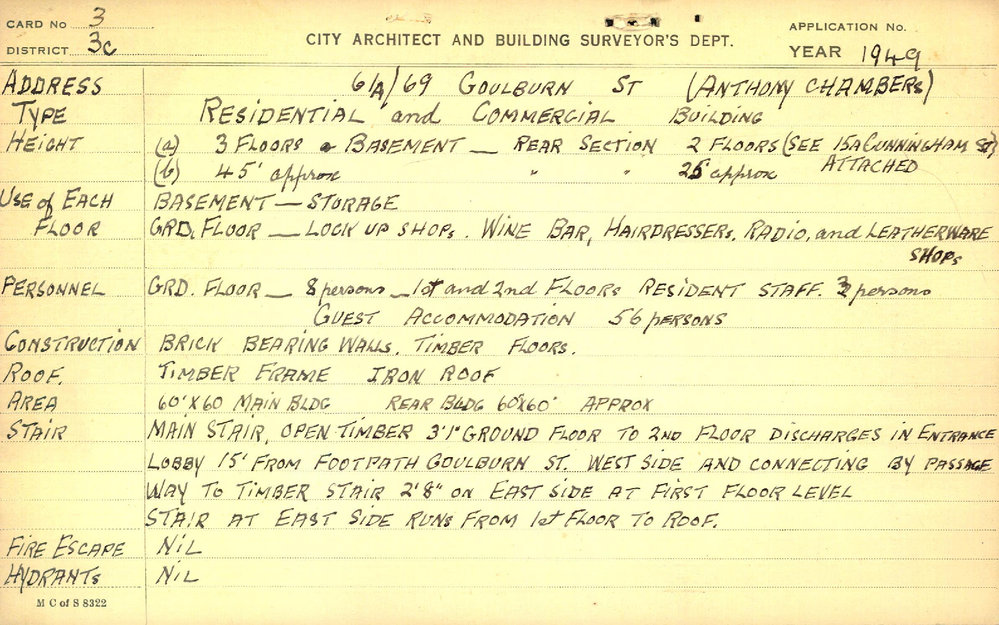 CARD No 3
DISTRICT 3c
CITY ARCHITECT AND BUILDING SURVEYOR'S DEPT.
APPLICATION No.
YEAR 1949
ADDRESS 61A/69 GOULBURN ST (ANTHONY CHAMBERS)
TYPE RESIDENTIAL and COMMERCIAL BUILDING
HEIGHT (a) 3 FLOORS & BASEMENT — REAR SECTION 2 FLOORS (SEE 15A CUNNINGHAM ST)
(b) 45' approx " " 25' approx ATTACHED
USE of EACH BASEMENT — STORAGE
FLOOR GRD. FLOOR — LOCK UP SHOPS. WINE BAR, HAIRDRESSERS, RADIO, and LEATHERWARE
SHOPS
PERSONNEL GRD. FLOOR — 8 persons — 1st and 2nd FLOORS RESIDENT STAFF. 3 persons
GUEST ACCOMMODATION 56 persons
CONSTRUCTION BRICK BEARING WALLS. TIMBER FLOORS.
ROOF. TIMBER FRAME IRON ROOF
AREA 60'X60 MAIN BLDG REAR BLDG 60'X60' APPROX
STAIR MAIN STAIR, OPEN TIMBER 3'1" GROUND FLOOR TO 2ND FLOOR DISCHARGES IN ENTRANCE
LOBBY 15' FROM FOOTPATH GOULBURN ST. WEST SIDE AND CONNECTING BY PASSAGE
WAY TO TIMBER STAIR 2'8" ON EAST SIDE AT FIRST FLOOR LEVEL
STAIR AT EAST SIDE RUNS FROM 1st FLOOR TO ROOF.
FIRE ESCAPE NIL
HYDRANTS NIL
M C of S 8322